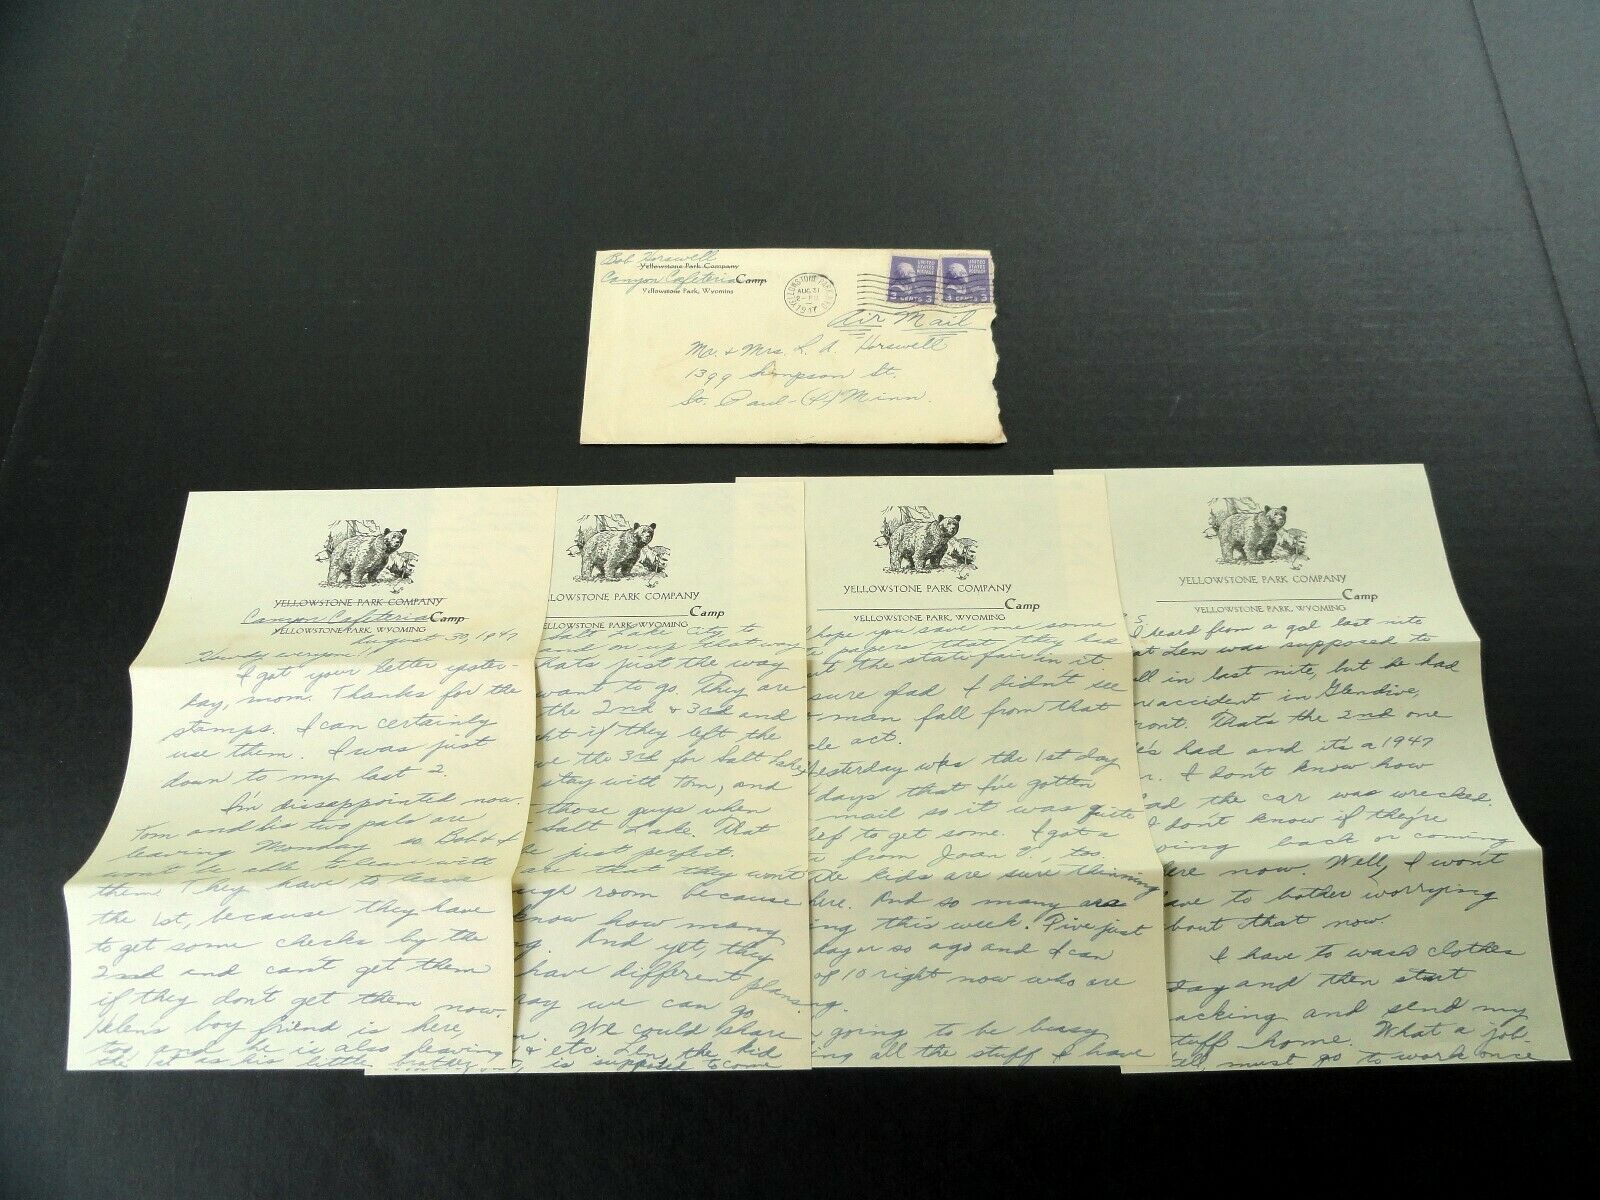 Bob Horswell
Yellowstone Park Company
Canyon Cafeteria Camp
Yellowstone Park, Wyoming
YELLOWSTONE PARK
AUG 31
2 - PM
1947
UNITED STATES POSTAGE
3 CENTS 3
UNITED STATES POSTAGE
3 CENTS 3
Air Mail
Mr. & Mrs. L. A. Horswell
1399 Simpson St.
St. Paul - (4) Minn.
YELLOWSTONE PARK COMPANY
Canyon Cafeteria Camp
YELLOWSTONE PARK, WYOMING
August 30, 1947
Howdy everyone!
I got your letter yester-
day, mom. Thanks for the
stamps. I can certainly
use them. I was just
down to my last 2.
I'm disappointed now.
Tom and his two pals are
leaving Monday so Bob & I
won't be able to leave with
them. They have to leave
the 1st, because they have
to get some checks by the
2nd and can't get them
if they don't get them now.
Helens boy friend is here,
too and he is also leaving
the 1st as his little brother
LLOWSTONE PARK COMPANY
Camp
YELLOWSTONE PARK, WYOMING
Salt Lake City to
and on up that way
hats just the way
want to go. They are
the 2nd & 3rd and
ht if they left the
ve the 3rd for Salt Lake,
stay with Tom, and
those guys when
Salt Lake. That
be just perfect.
are that they won't
ugh room because
know how many
g. And yet, they
have different plans
way we can go
n. We could share
& etc Len, the kid
is supposed to come
YELLOWSTONE PARK COMPANY
Camp
YELLOWSTONE PARK, WYOMING
hope you save me some
papers that they has
ut the state fair in it
sure glad I didn't see
man fall from that
le act.
Yesterday was the 1st day
days that I've gotten
mail so it was quite
ief to get some. I got a
r from Joan V., too.
The kids are sure thinning
here. And so many are
ing this week. Five just
day or so ago and I can
of 10 right now who are
ng.
going to be busy
ing all the stuff I have
YELLOWSTONE PARK COMPANY
Camp
YELLOWSTONE PARK, WYOMING
S
I heard from a gal last nite
at Len was supposed to
ll in last nite, but he had
n accident in Glendive,
mont. Thats the 2nd one
he's had and it's a 1947
I don't know how
ad the car was wrecked.
I don't know if they're
oing back or coming
here now. Well, I won't
ave to bother worrying
bout that now.
I have to wash clothes
day and then start
acking and send my
tuff home. What a job.
ell, must go to work once